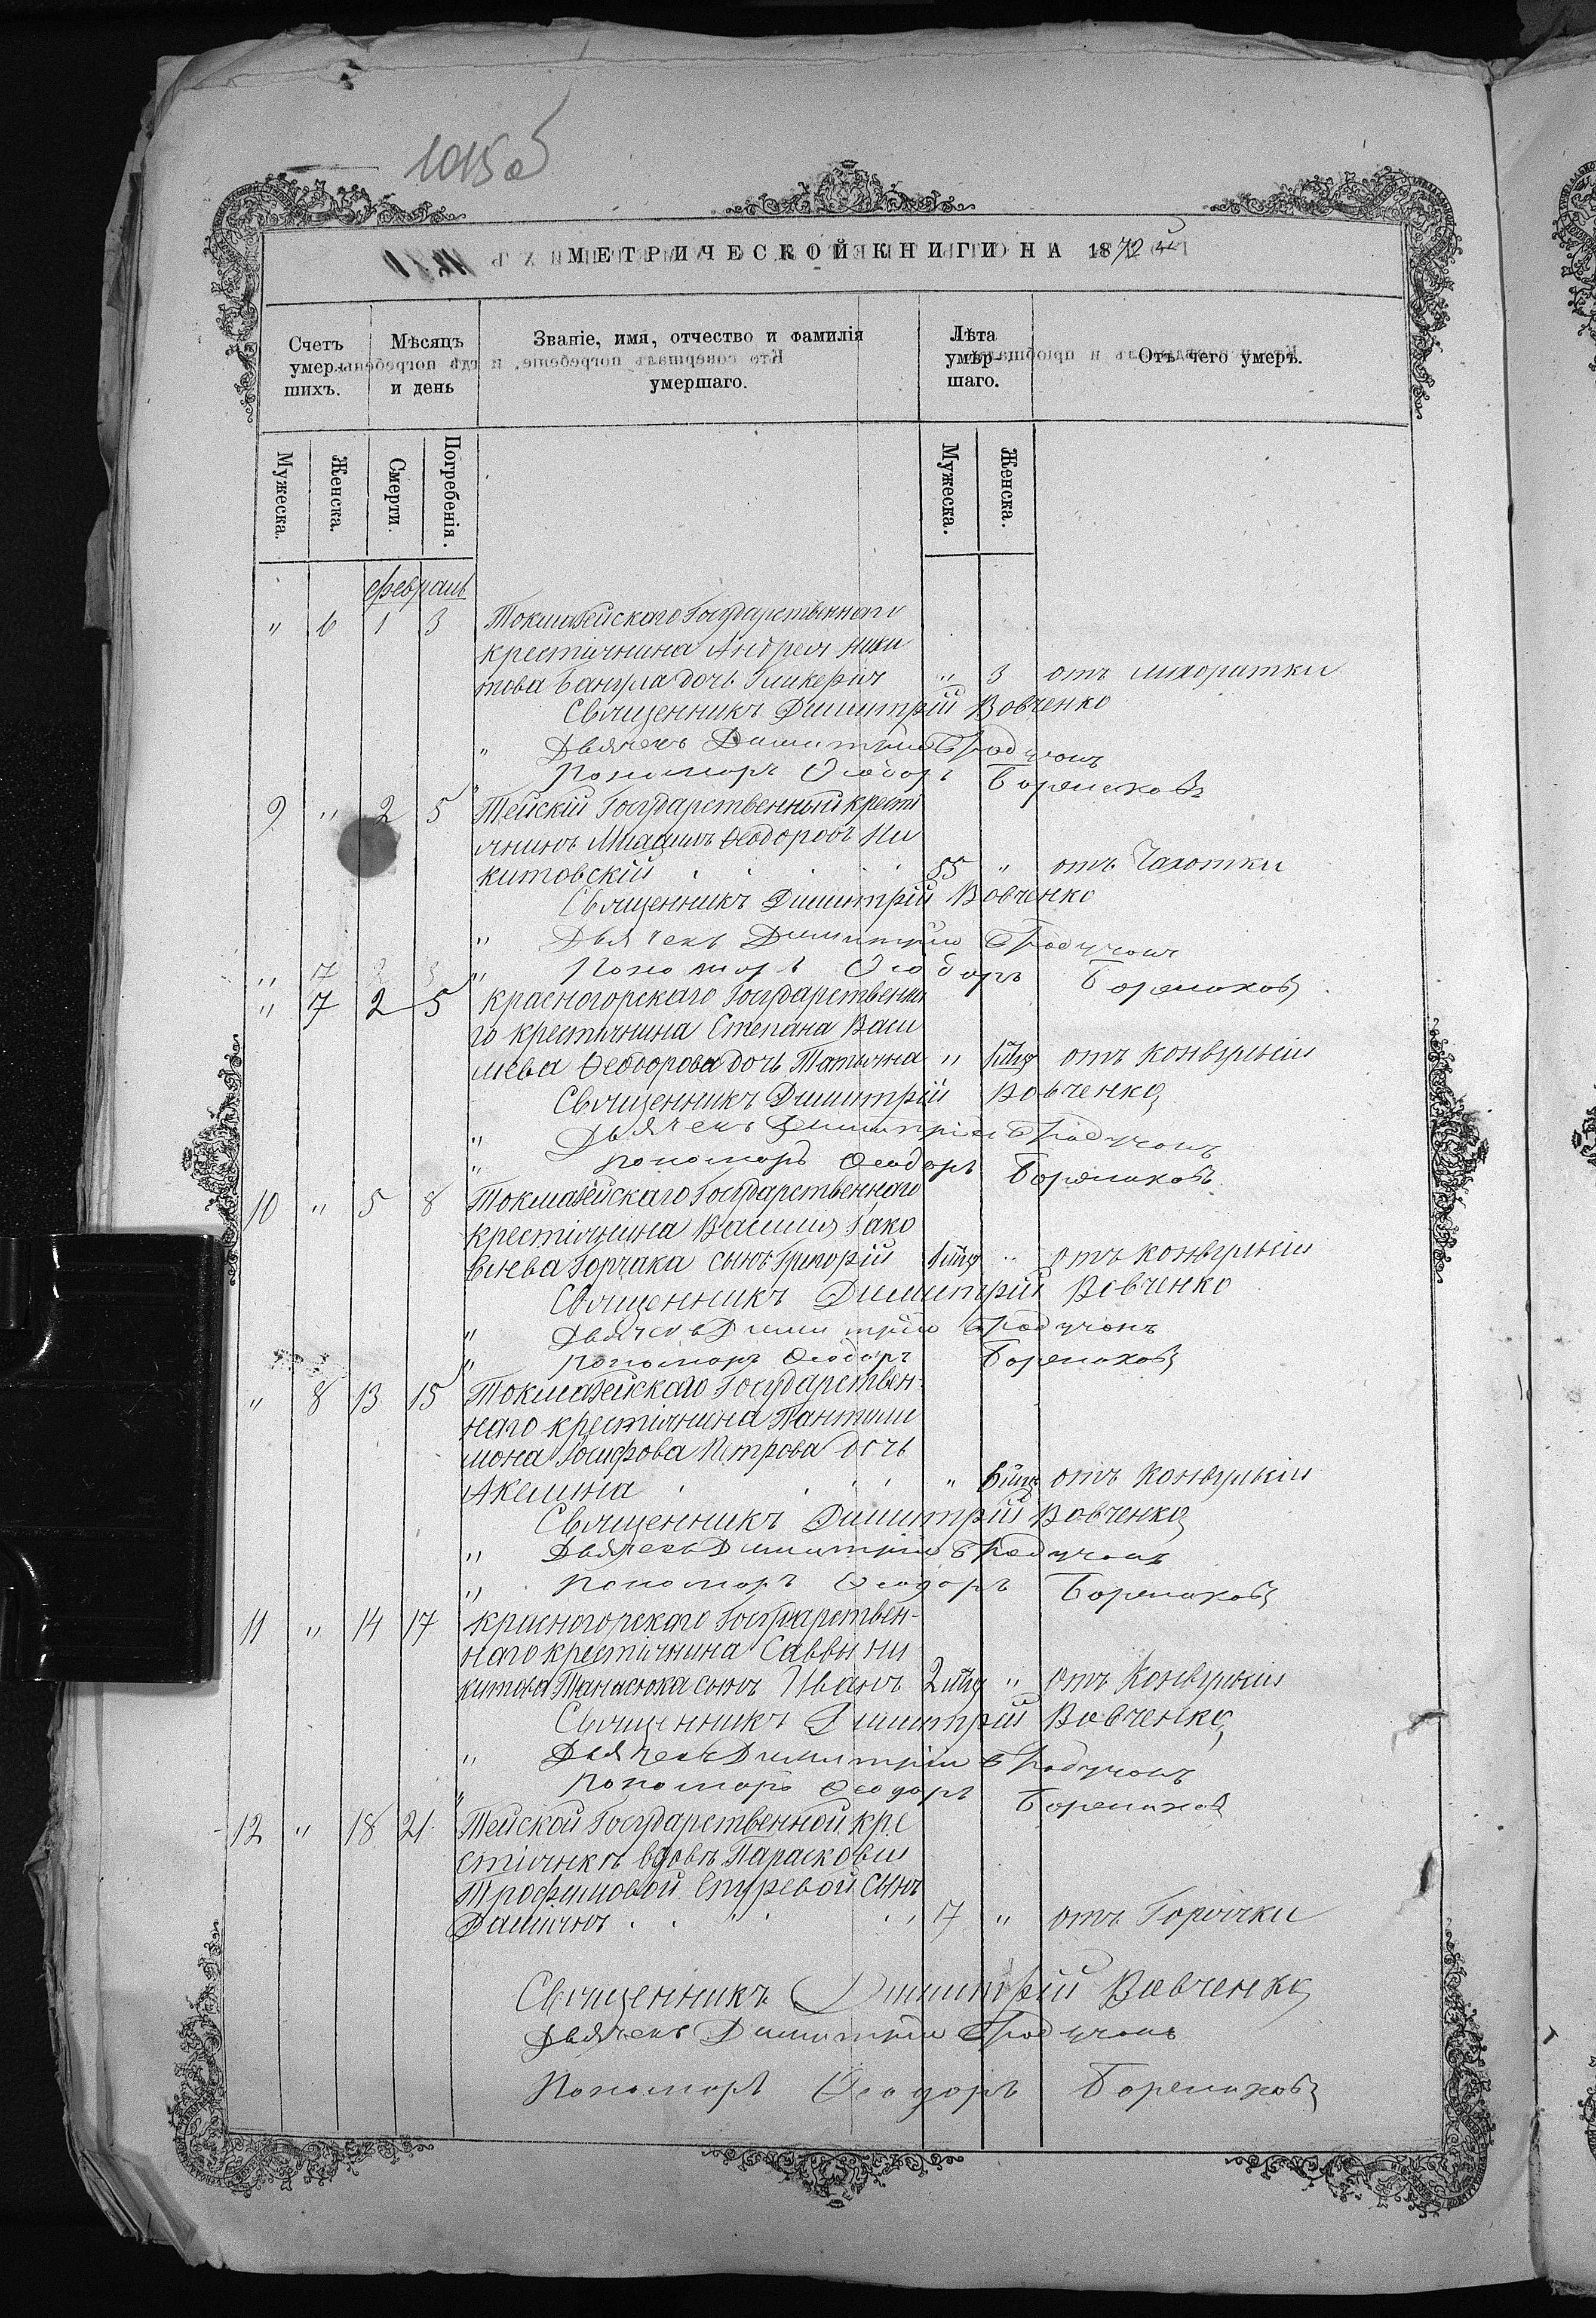 1015 об
МЕТРИЧЕСКОЙ КНИГИ НА 1872 й
Счетъ умер- шихъ.
Мѣсяцъ и день
Званіе, имя, отчество и фамилія умершаго.
Лѣта умер- шаго.
Отъ чего умеръ.
Мужеска. Женска. Смерти. Погребенія. Мужеска. Женска.
февраль
" 6 1 3 Токмазейскаго Государственнаго
крестіянина Андрея Ники
това дочь Гликерія " 3 отъ лихоратки
Священникъ Димитрій Вовченко
" Дьячекъ Димитрій
" Пономарь Ѳеодоръ
9 " 2 5 Тейскій Государственный крестi
янинъ Ѳеодоровъ Ни
китовскій . . . . 55 " отъ Чахотки
Священникъ Димитрій Вовченко
" Дьячекъ Димитрій
" 7 2 3 " Пономарь Ѳеодоръ
" 7 2 5 Красногорскаго Государственна
го крестіянина Степана Васи
лева Ѳеодорова дочь Татіяна " отъ конвульсіи
Священникъ Димитрій Вовченко
" Дьячекъ Димитрій
" Пономарь Ѳеодоръ
10 " 5 8 Токмазейскаго Государственнаго
крестіянина Василія Іако
влева Горчака сынъ Григорій " отъ конвульсіи
Священникъ Димитрій Вовченко
" Дьячекъ Димитрій
" Пономарь Ѳеодоръ
" 8 13 15 Токмазейскаго Государствен-
наго крестіянина Пантели
мона Іосифова Петрова дочь
Акелина . . . . " отъ Конвульсіи
Священникъ Димитрій Вовченко
" Дьячекъ Димитрій
" Пономарь Ѳеодоръ
11 " 14 17 Красногорскаго Государствен-
наго крестіянина Саввы Ни
китова Танасюка сынъ Иванъ 2 " отъ Конвульсіи
Священникъ Димитрій Вовченко
" Дьячекъ Димитрій
" Пономарь Ѳеодоръ
12 " 18 21 Тейской Государственной кре
стіянкѣ вдовѣ Парасковіи
Трофимовой сынъ
Даміянъ . . . . 17 " отъ Горячки
Священникъ Димитрій Вовченко
Дьячекъ Димитрій
Пономарь Ѳеодоръ